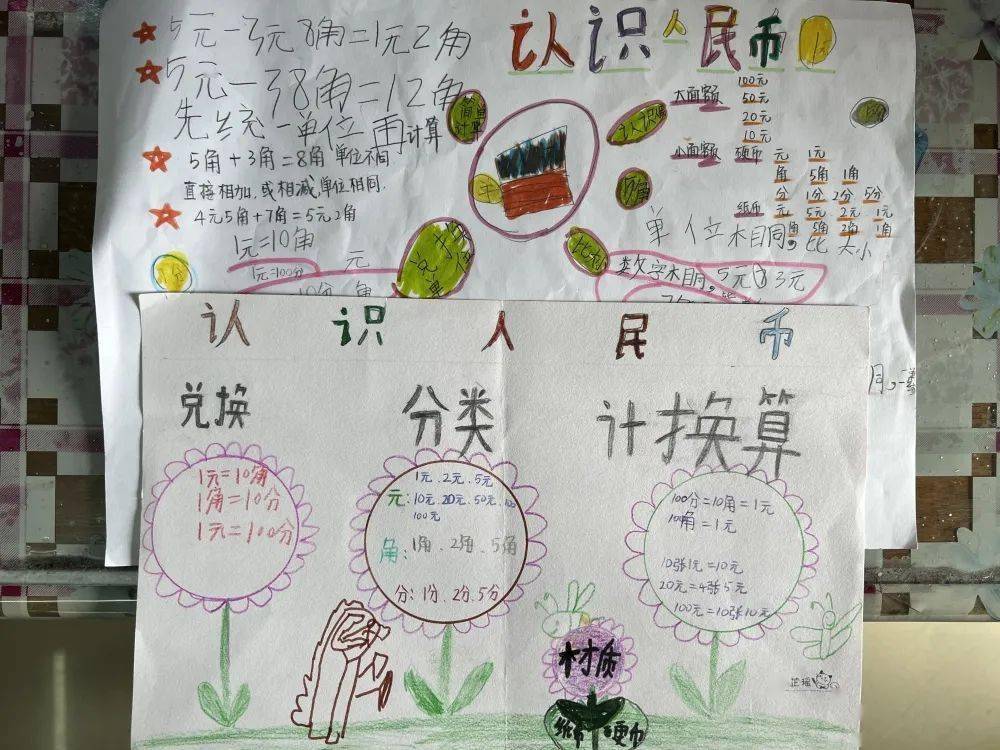 5元-3元8角=1元2角
5元-38角=12角
先统一单位再计算
5角+3角=8角单位不同
直接相加,或相减,单位相同.
4元5角+7角=5元2角
1元=10角
1元=100分
元
角
简单计算
认识人民币
认识
大面额
100元
50元
20元
10元
小面额 硬币 元 1元
角 5角 1角
分 1分 2分 5分
纸币 元 5元 2元 1元
角 5角 2角 1角
单位不同,比大小
数字不同,5元〇3元
认识人民币
兑换
1元=10角
1角=10分
1元=100分
分类
1元、2元、5元
元:10元、20元、50元、100
100元
角:1角、2角、5角
分:1分、2分、5分
计换算
100分=10角=1元
100角=1元
10张1元=10元
20元=4张5元
100元=10张10元
材质
纸币 硬币